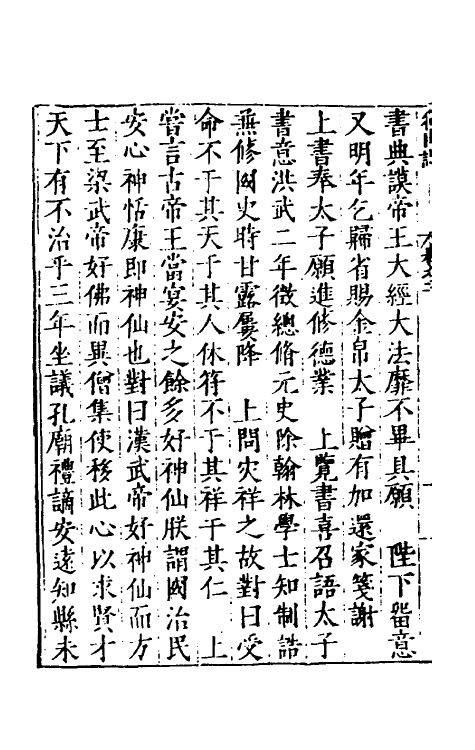 書典謨帝王大經大法靡不畢具願　陛下畱意
又明年乞歸省賜金帛太子贈有加還家箋謝
上書奉太子願進修德業　上覽書喜召語太子
書意洪武二年徵總脩元史除翰林學士知制誥
兼修國史時甘露屢降　上問灾祥之故對曰受
命不于其天于其人休符不于其祥于其仁　上
嘗言古帝王當宴安之餘多好神仙朕謂國治民
安心神恬康即神仙也對曰漢武帝好神仙而方
士至梁武帝好佛而異僧集使移此心以求賢才
天下有不治乎三年坐議孔廟禮謫安遠知縣未